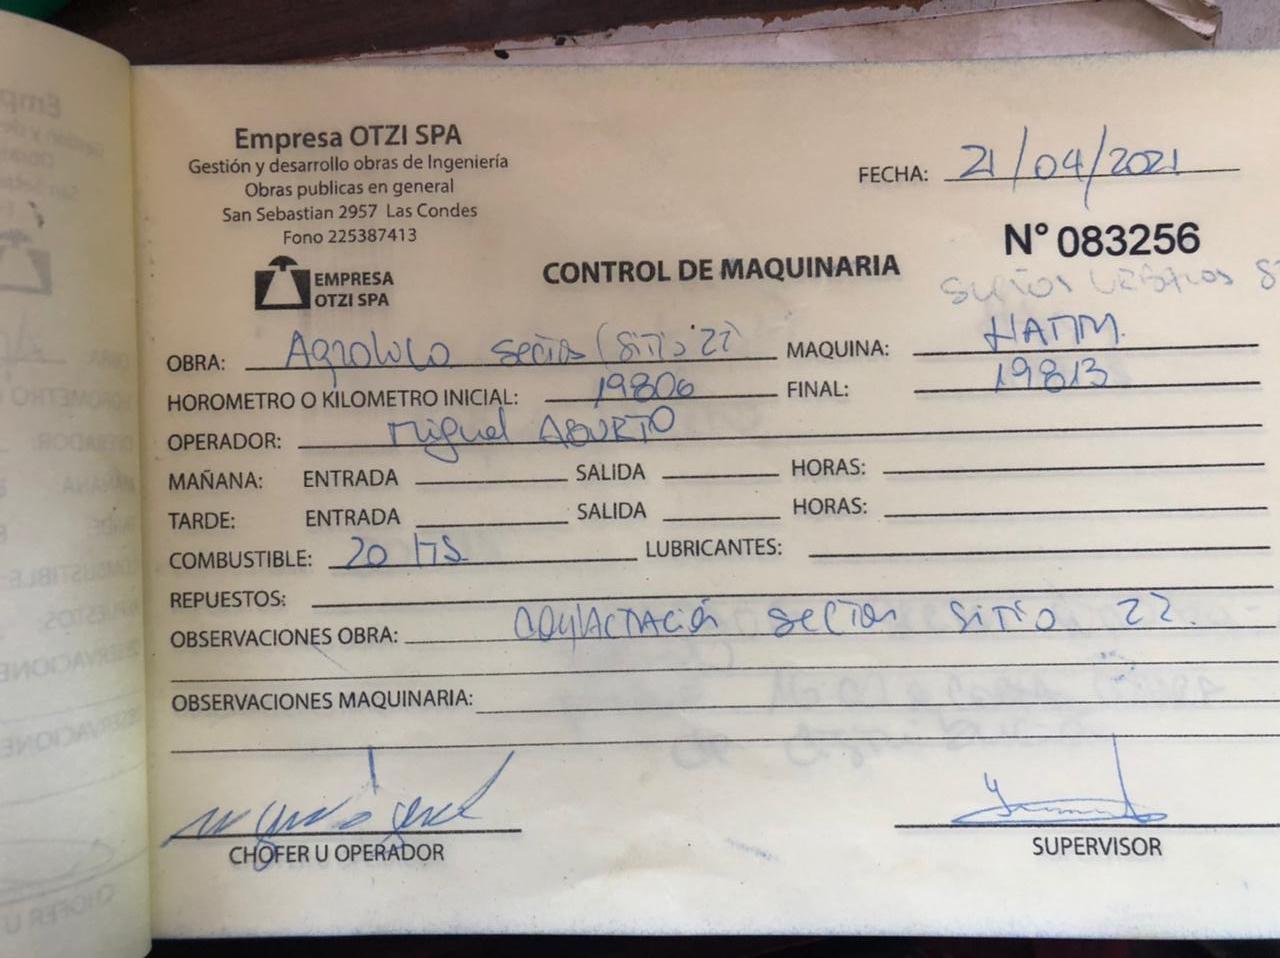 Empresa OTZI SPA
Gestión y desarrollo obras de Ingeniería
Obras publicas en general
San Sebastian 2957 Las Condes
Fono 225387413
EMPRESA
OTZI SPA
FECHA: 21/04/2021
N° 083256
CONTROL DE MAQUINARIA
OBRA: Agrololo Sector (Sitio 22) MAQUINA: HAMM.
HOROMETRO O KILOMETRO INICIAL: 19806 FINAL: 19813
OPERADOR: Miguel ABURTO
MAÑANA: ENTRADA SALIDA HORAS:
TARDE: ENTRADA SALIDA HORAS:
COMBUSTIBLE: 20 lts LUBRICANTES:
REPUESTOS:
OBSERVACIONES OBRA: COMPACTACIÓN Sector Sitio 22.
OBSERVACIONES MAQUINARIA:
CHOFER U OPERADOR SUPERVISOR